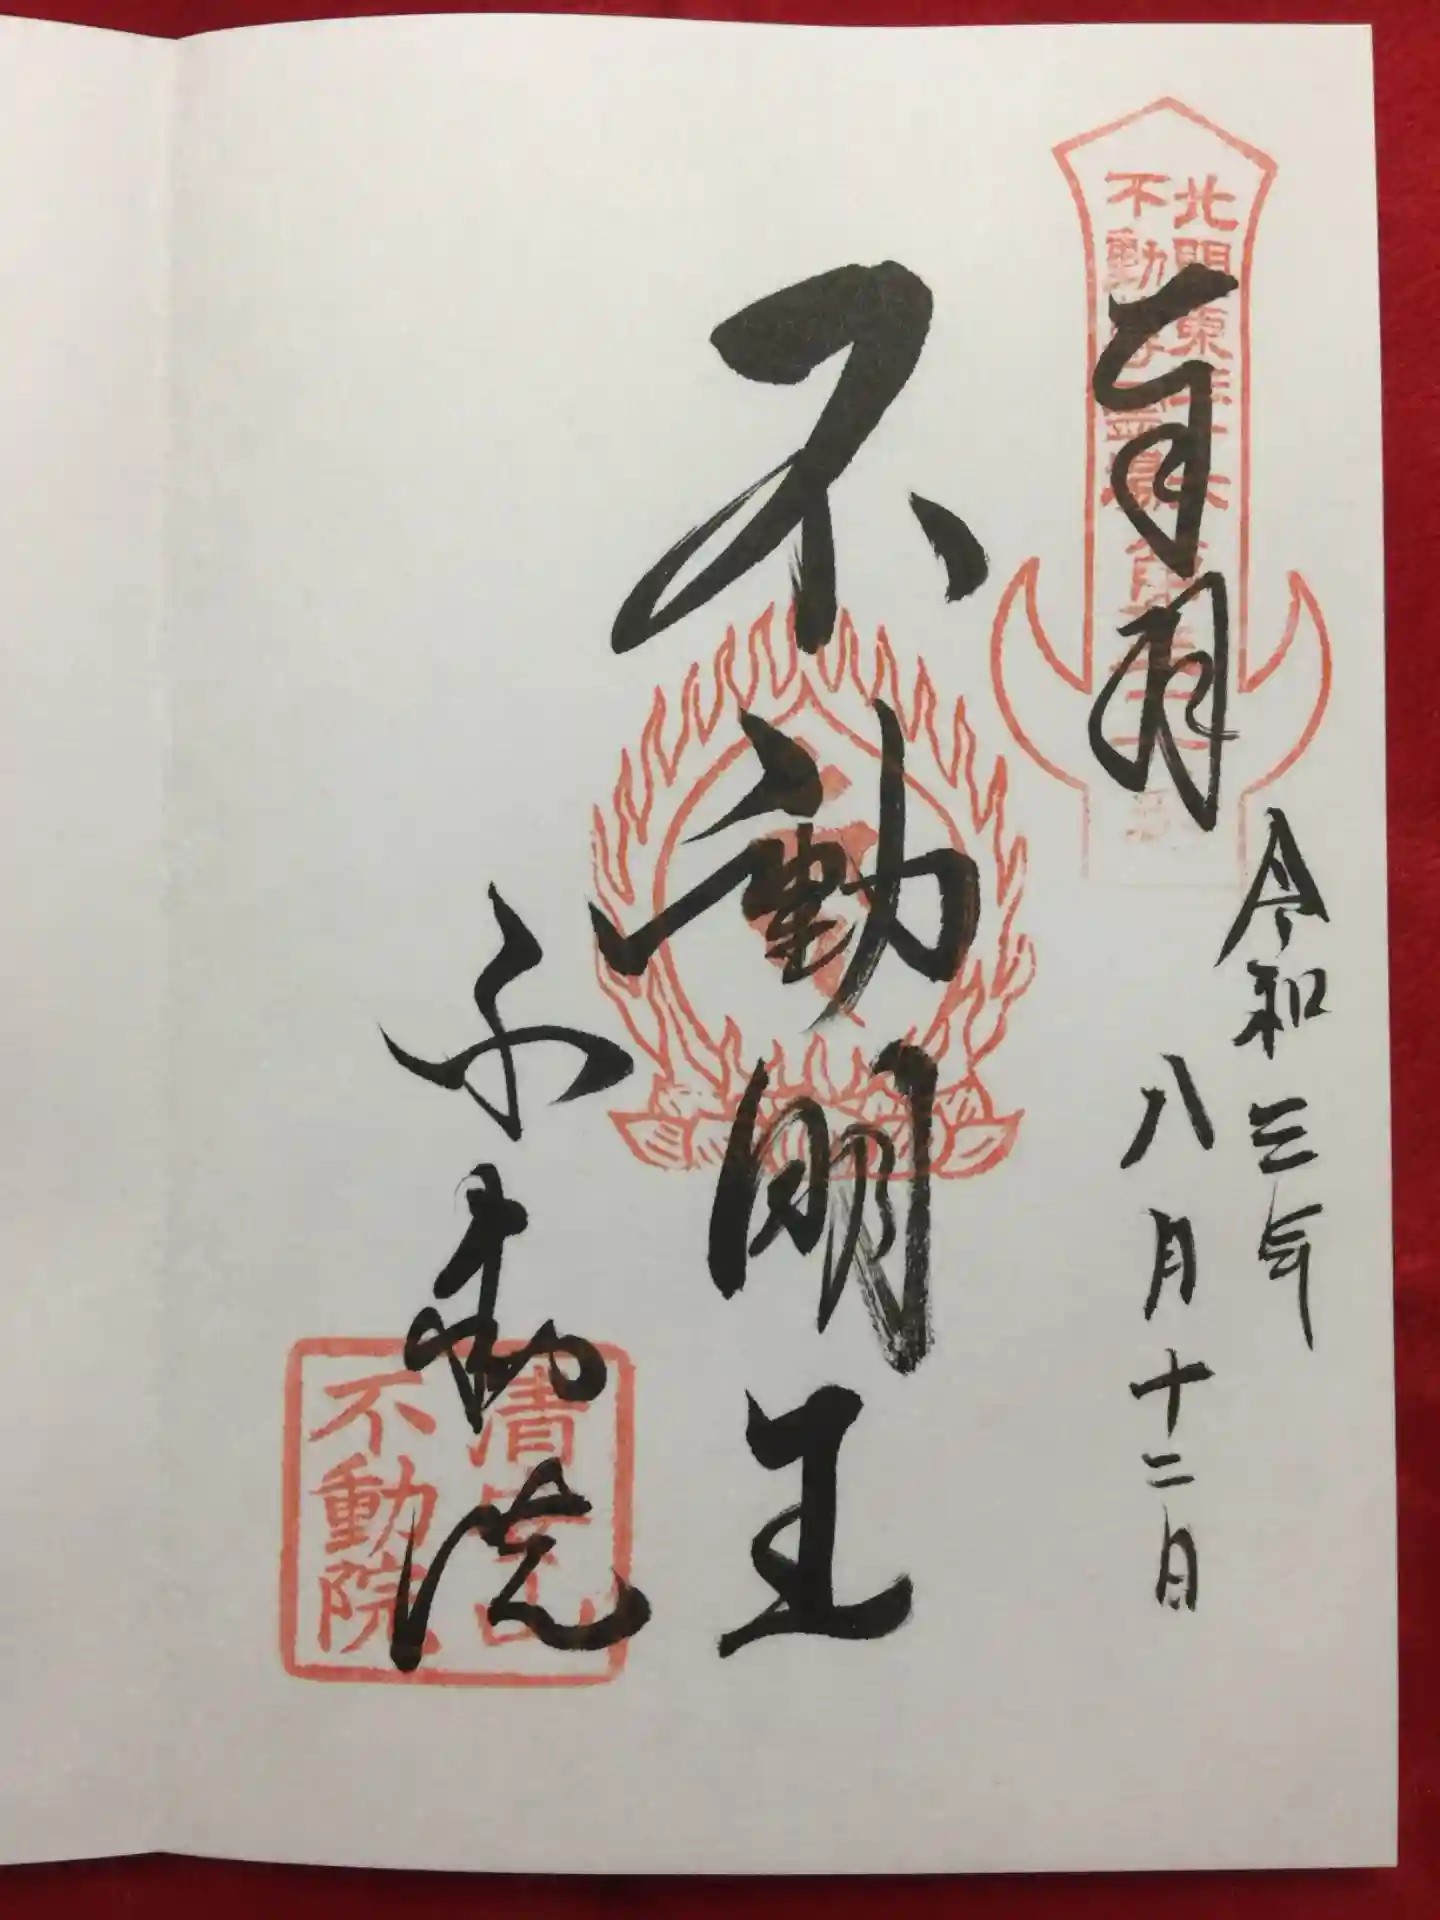 北関東三十六
不動尊霊場
奉拝
令和三年
八月十二日
不動明王
不動院
清安山
不動院